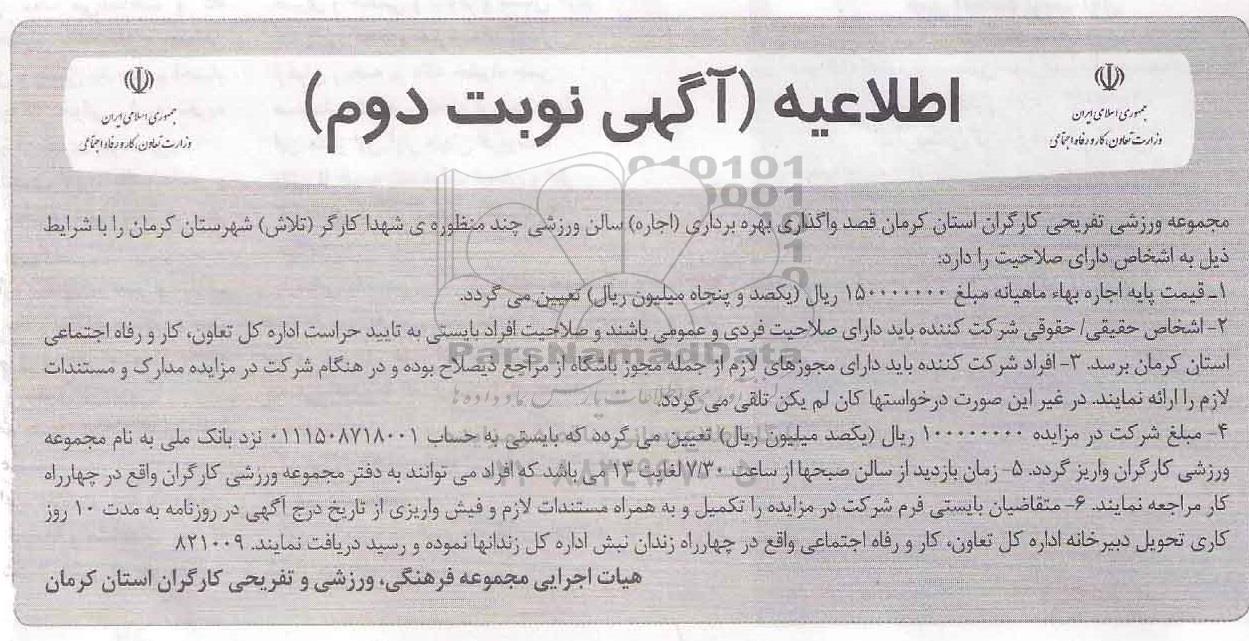 جمهوری اسلامی ایران
وزارت تعاون، کار و رفاه اجتماعی
اطلاعیه (آگهی نوبت دوم)
جمهوری اسلامی ایران
وزارت تعاون، کار و رفاه اجتماعی
مجموعه ورزشی تفریحی کارگران استان کرمان قصد واگذاری بهره برداری (اجاره) سالن ورزشی چند منظوره ی شهدا کارگر (تلاش) شهرستان کرمان را با شرایط
ذیل به اشخاص دارای صلاحیت را دارد:
۱ـ قیمت پایه اجاره بهاء ماهیانه مبلغ ۱۵۰۰۰۰۰۰۰ ریال (یکصد و پنجاه میلیون ریال) تعیین می گردد.
۲- اشخاص حقیقی/ حقوقی شرکت کننده باید دارای صلاحیت فردی و عمومی باشند و صلاحیت افراد بایستی به تایید حراست اداره کل تعاون، کار و رفاه اجتماعی
استان کرمان برسد. ۳- افراد شرکت کننده باید دارای مجوزهای لازم از جمله مجوز باشگاه از مراجع ذیصلاح بوده و در هنگام شرکت در مزایده مدارک و مستندات
لازم را ارائه نمایند. در غیر این صورت درخواستها کان لم یکن تلقی می گردد.
۴- مبلغ شرکت در مزایده ۱۰۰۰۰۰۰۰۰ ریال (یکصد میلیون ریال) تعیین می گردد که بایستی به حساب ۰۱۱۱۵۰۸۷۱۸۰۰۱ نزد بانک ملی به نام مجموعه
ورزشی کارگران واریز گردد. ۵- زمان بازدید از سالن صبحها از ساعت ۷/۳۰ لغایت ۱۳ می باشد که افراد می توانند به دفتر مجموعه ورزشی کارگران واقع در چهارراه
کار مراجعه نمایند. ۶- متقاضیان بایستی فرم شرکت در مزایده را تکمیل و به همراه مستندات لازم و فیش واریزی از تاریخ درج آگهی در روزنامه به مدت ۱۰ روز
کاری تحویل دبیرخانه اداره کل تعاون، کار و رفاه اجتماعی واقع در چهارراه زندان نبش اداره کل زندانها نموده و رسید دریافت نمایند. ۸۲۱۰۰۹
هیات اجرایی مجموعه فرهنگی، ورزشی و تفریحی کارگران استان کرمان
ParsNamadData